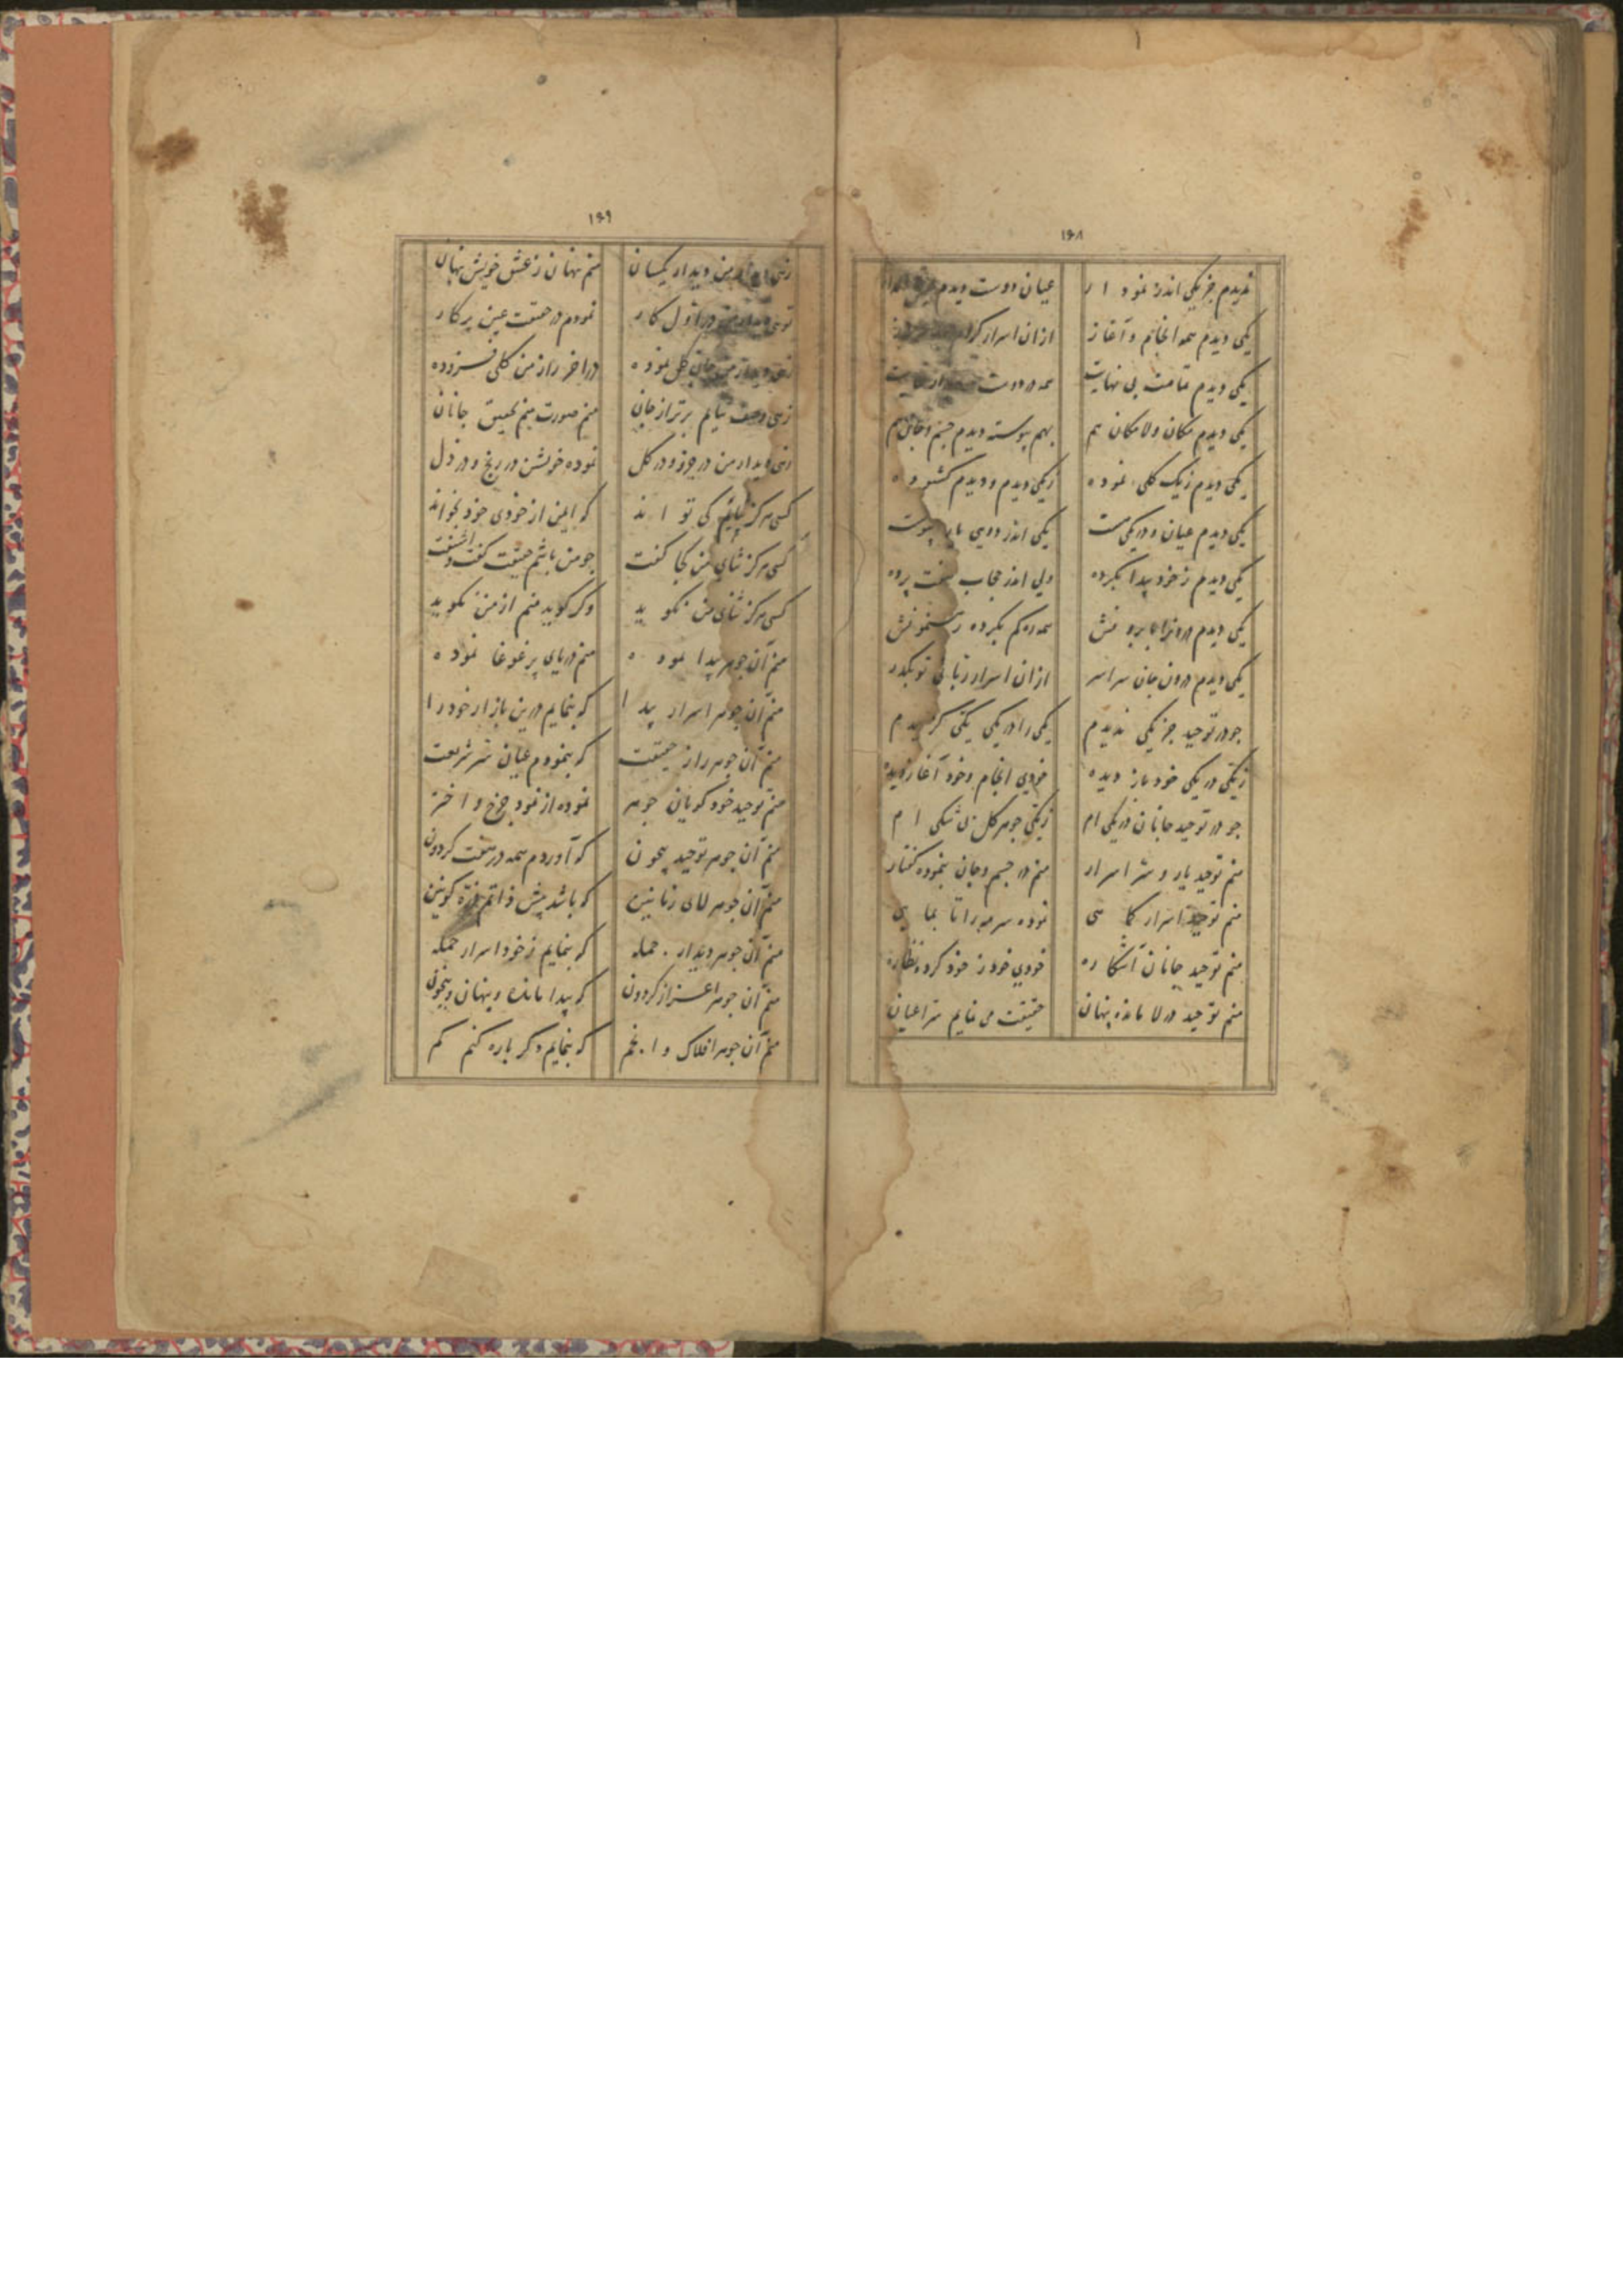 ۱۶۸
ندیدم جز یکی اندر نمودار عیان دوست دیدم
یکی دیدم همه انجام و آغاز از ان اسرار کردم
یکی دیدم قامت بی نهایت همه در دوست
یکی دیدم مکان ولا مکان هم بهم پیوسته دیدم جسم و جان هم
یکی دیدم زیک کلی نموده زیکی دیدم و دیدم
یکی دیدم عیان و در یکی است یکی اندر دویی
یکی دیدم ز خود پیدا بکرده ولی اندر حجاب هفت پرده
یکی دیدم همه ره کم بکرده رهنمونش
یکی دیدم درون جان سراسر از ان اسرار ربانی تو بگذر
جو در توحید جز یکی ندیدم یکی را در یکی یکی
زیکی در یکی خود باز دیده خودی انجام و خود آغاز دیده
جو در توحید جانان در یکی ام زیکی جوهر کل بی شکی ام
منم توحید یار و سر اسرار منم در جسم و جان بنموده گفتار
منم توحید اسرار کماهی نموده سر
منم توحید جانان آشکاره خودی خود ز خود کرده نظاره
منم توحید در لا مانده پنهان حقیقت می نمایم سر اعیان
۱۶۹
دیدار یکسان منم پنهان ز عشق خویش پنهان
در اول کار نمودم در حقیقت عین پرکار
جان کل نموده در اخر راز من کلی فزوده
زهی وصف نیایم برتر از جان منم صورت منم تحقیق جانان
زهی دیدار من در جزو و در کل نموده خویشتن در رنج و در ذل
کسی هرگز کی تواند که این از خودی خود بخواند
کسی هرگز ثنای من کجا گفت جو من باشم حقیقت گفت و اشنفت
کسی هرگز ثنای من نگوید وگر گوید منم از من نگوید
منم آن جوهر پیدا نموده منم دریای پر غوغا نموده
منم آن جوهر اسرار پیدا که بنمایم درین بازار خود را
منم آن جوهر راز حقیقت که بنمودم عیان سر شریعت
منم توحید خود گویان جوهر نموده از نمود جرخ و اختر
منم آن جوهر توحید بیجون که آوردم همه در هفت گردون
منم آن جوهر لالای که باشد پیش ذاتم ذره کونین
منم آن جوهر دیدار جمله که بنمایم ز خود اسرار جمله
منم آن جوهر اعز از گردون که پیدا مانده و پنهان و بیجون
منم آن جوهر افلاک و انجم که بنمایم دگر باره کنم گم